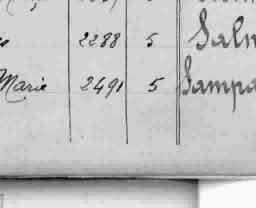 2288 5 Salm
Marie 2491 5 Sampa